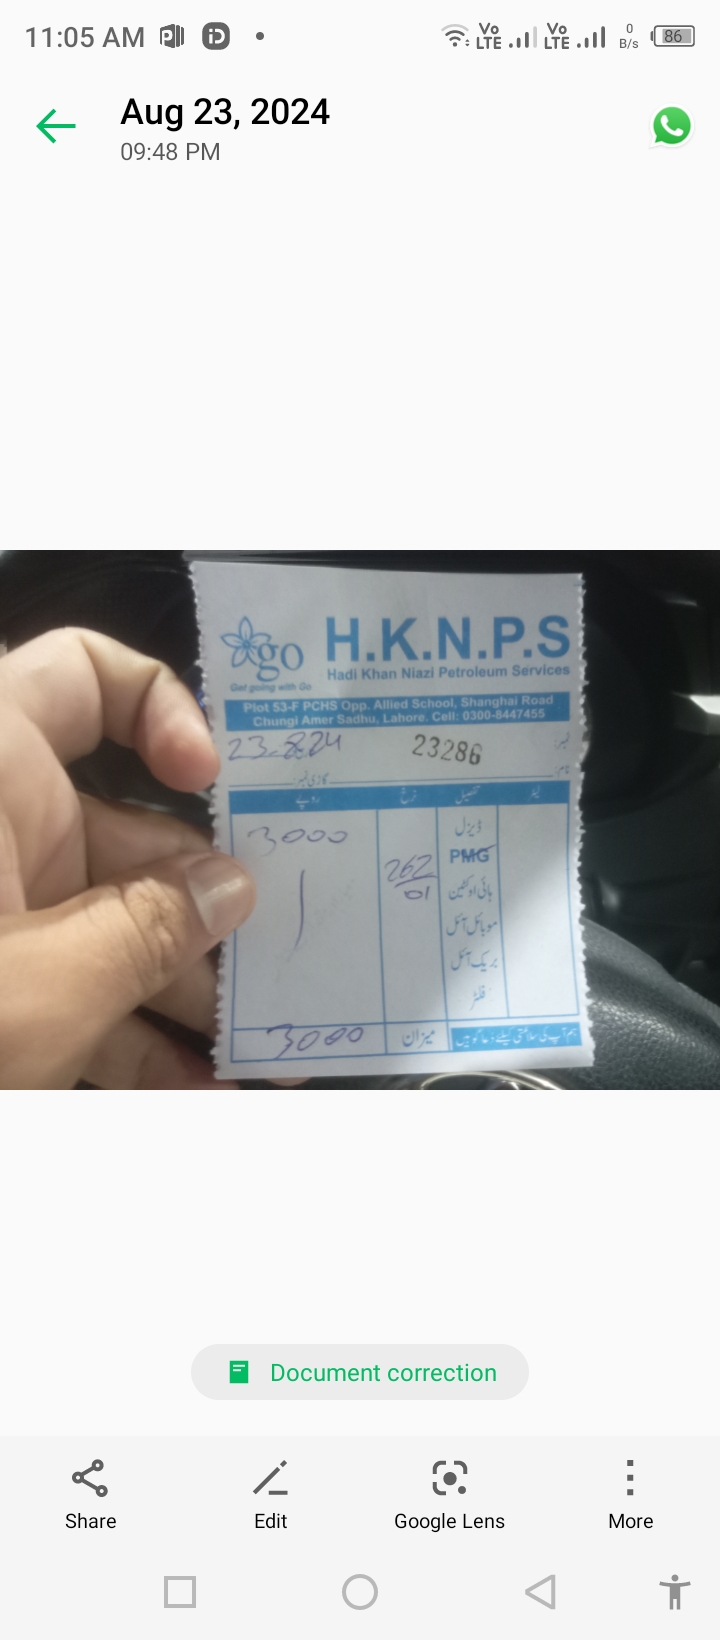 11:05 AM
Vo LTE Vo LTE 0 B/s 86
Aug 23, 2024
09:48 PM
go H.K.N.P.S
Hadi Khan Niazi Petroleum Services
Get going with Go
Plot 53-F PCHS Opp. Allied School, Shanghai Road
Chungi Amer Sadhu, Lahore. Cell: 0300-8447455
23-8-24 23286 نمبر:
نام: گاڑی نمبر:
لیٹر تفصیل نرخ روپے
ڈیزل 3000
PMG 262/01
ہائی اوکٹین
موبائل آئل
بریک آئل
فلٹر
ہم آپ کی سلامتی کیلئے دعا گو ہیں میزان 3000
Document correction
Share Edit Google Lens More